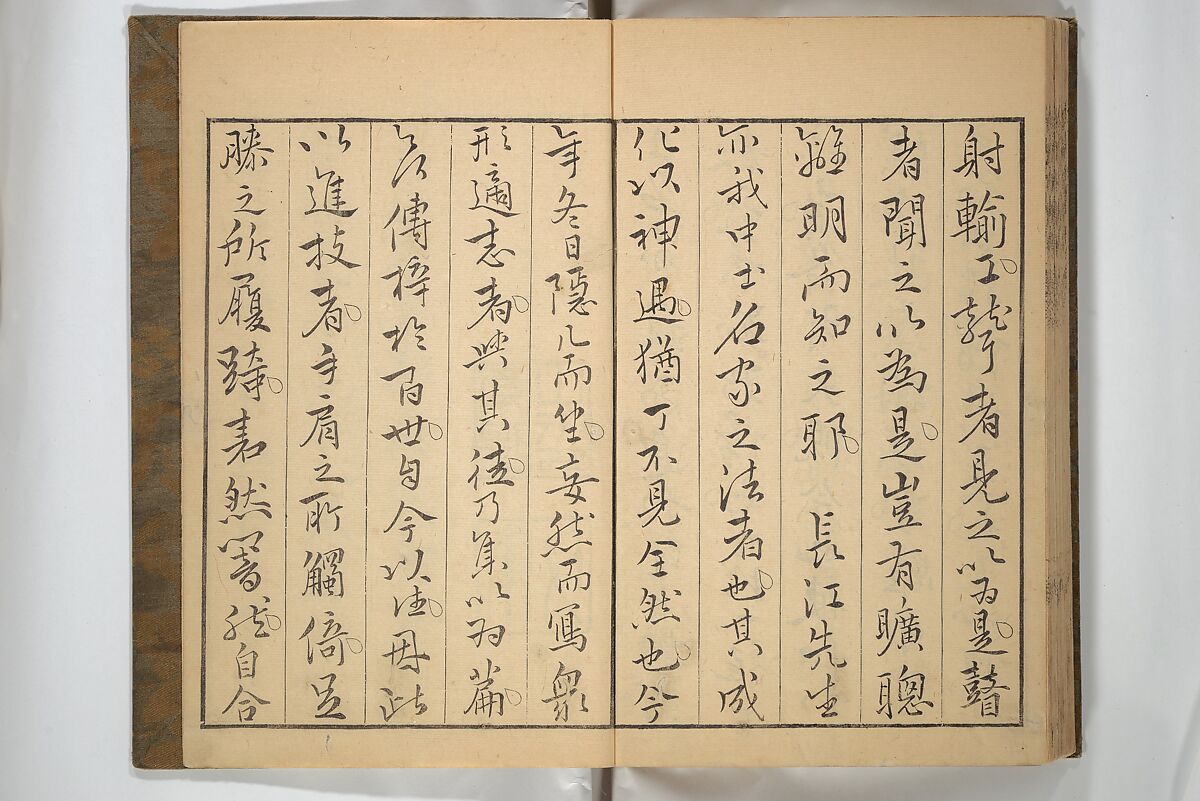 射輸工聾者見之以為是瞽
者聞之以為是豈有曠聰
離明而知之耶 長江先生
亦我中土名家之法者也其成
化以神遇猶丁不見全然也今
年冬日隱几而坐妄然而寫衆
形適志者與其徒乃集以為篇
傳梓於百世自今以往因此
以進技者手肩之所觸倚足
膝之所履踦砉然嚮然自合